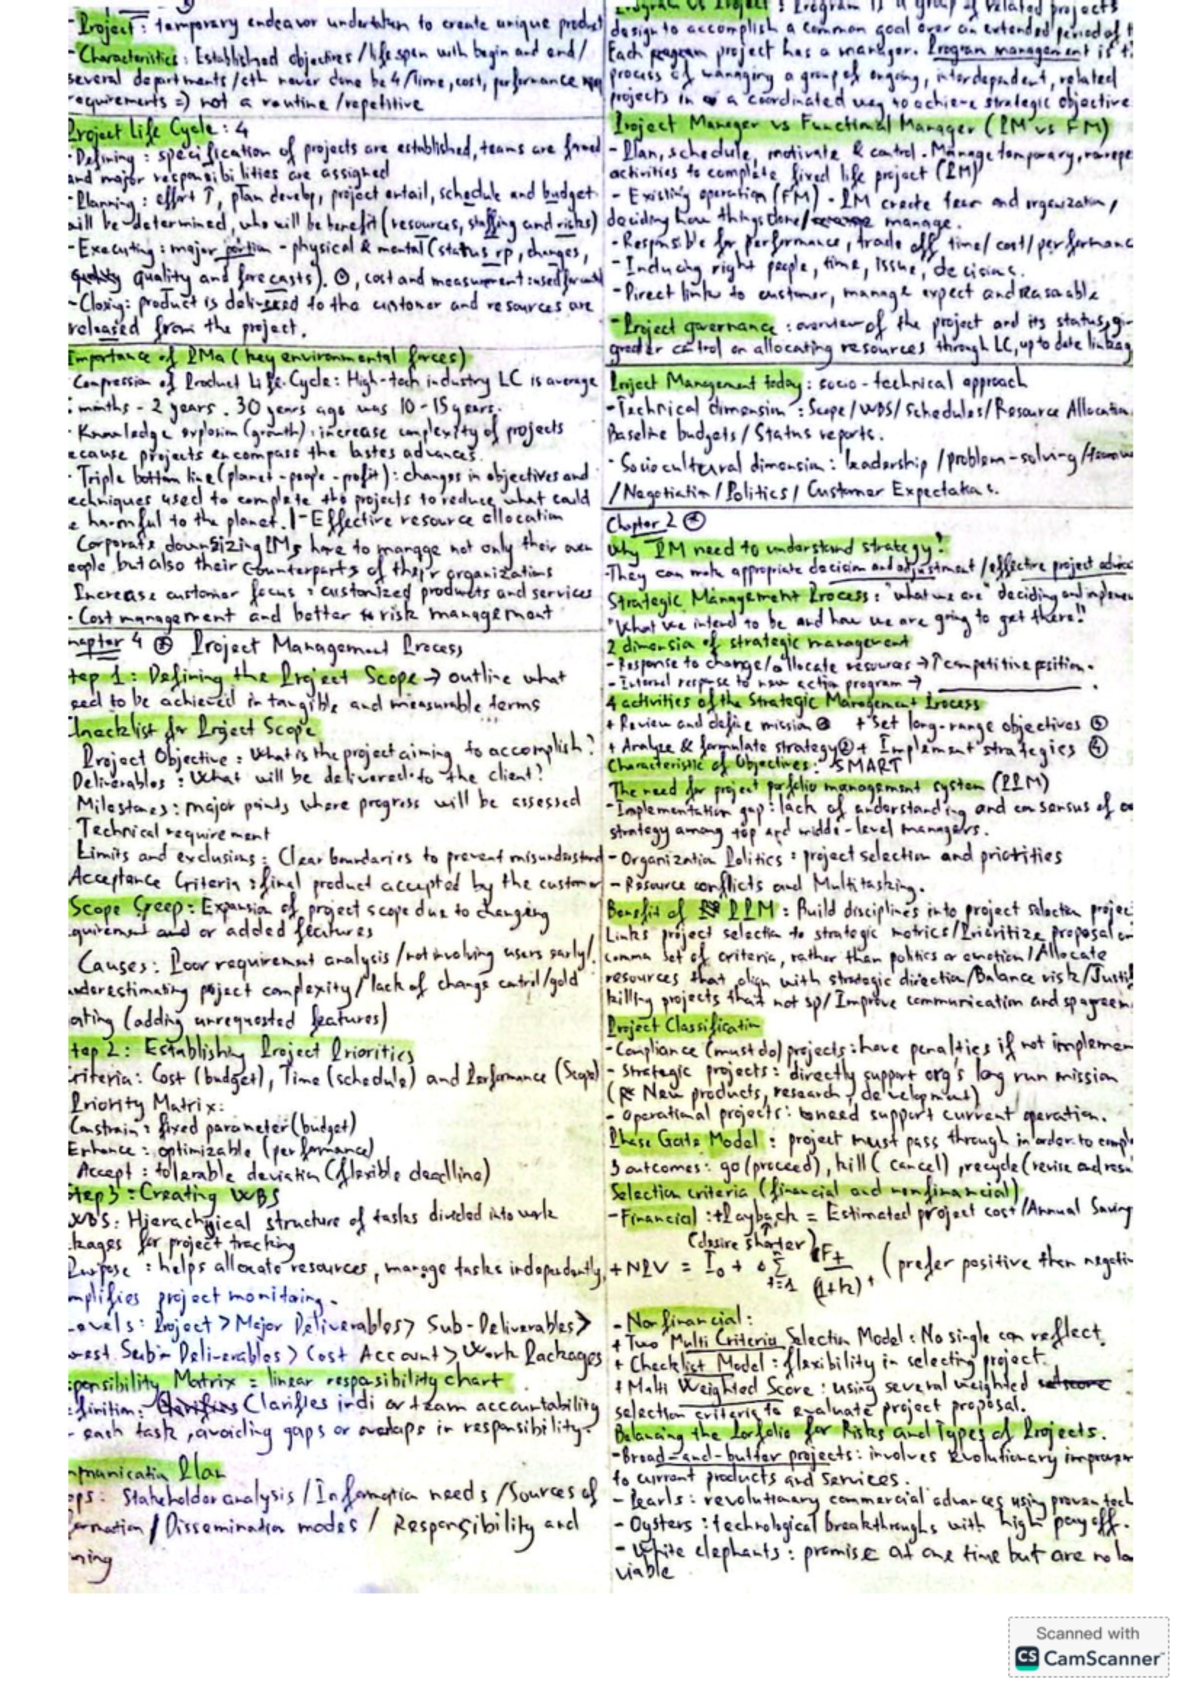 Project : temporary endeavor undertaken to create unique product
- Characteristics : Established objectives / life span with begin and end /
several departments / sth never done be 4 / time, cost, performance
requirements => not a routine / repetitive
Project Life Cycle : 4
- Defining : specification of projects are established, teams are formed
and major responsibilities are assigned
- Planning : effort ↑, plan develop, project entail, schedule and budget
will be determined, who will be benefit (resources, staffing and risks)
- Executing : major portion - physical & mental (status rp, changes,
quality and forecasts). , cost and measurement : used for
- Closing : product is delivered to the customer and resources are
released from the project.
Importance of PMa (key environmental forces)
Compression of Product Life Cycle : High-tech industry LC is average
months - 2 years. 30 years ago was 10 - 15 years.
- Knowledge explosion (growth) : increase complexity of projects
ecause projects encompass the lastes advances.
- Triple bottom line (planet - people - profit) : changes in objectives and
echniques used to complete the projects to reduce what could
e harmful to the planet. | - Effective resource allocation
Corporate downsizing PMs have to manage not only their own
eople but also their counterparts of their organizations
Increase customer focus : customized products and services
- Cost management and better risk management
hapter 4 Project Management Process
tep 1 : Defining the Project Scope → outline what
eed to be achieved in tangible and measurable terms
Checklist for Project Scope
Project Objective : What is the project aiming to accomplish?
Deliverables : What will be delivered to the client?
Milestones : major points where progress will be assessed
Technical requirement
Limits and exclusions : Clear boundaries to prevent misunderstand
Acceptance Criteria : final product accepted by the customer
Scope Creep : Expansion of project scope due to changing
quirement and or added features
Causes : Poor requirement analysis / not involving users early /
underestimating project complexity / lack of change control / gold
ating (adding unrequested features)
tep 2 : Establishing Project Priorities
riteria : Cost (budget), Time (schedule) and Performance (Scope)
Priority Matrix :
Constrain : fixed parameter (budget)
Enhance : optimizable (performance)
Accept : tolerable deviation (flexible deadline)
Step 3 : Creating WBS
WBS : Hierachyical structure of tasks divided into work
ckages for project tracking
Purpose : helps allocate resources, manage tasks independently,
mplifies project monitoring.
Levels : Project > Major Deliverables > Sub-Deliverables >
west Sub-Deliverables > Cost Account > Work Packages
sponsibility Matrix = linear responsibility chart
efinition : Clarifies indi or team accountability
each task, avoiding gaps or overlaps in responsibility.
mmunication Plan
eps : Stakeholder analysis / Information needs / Sources of
formation / Dissemination modes / Responsibility and
ming
Program vs Project : Program is a group of related projects
design to accomplish a common goal over an extended period of t
Each project has a manager. Program management is t
process of managing a group of ongoing, interdependent, related
projects in a coordinated way to achieve strategic objective
Project Manager vs Functional Manager (PM vs FM)
- Plan, schedule, motivate & control. Manage temporary, nonrepe
activities to complete fixed life project (PM)
- Existing operation (FM) - PM create team and organization,
deciding how things done / manage.
- Responsible for performance, trade off time / cost / performanc
- Inducing right people, time, issue, decisions.
- Direct link to customer, manage expect and reasonable
- Project governance : overview of the project and its status, gi
greater control on allocating resources through LC, up to date linkag
Project Management today : socio-technical approach
- Technical dimension : Scope / WBS / schedules / Resource Allocation
Baseline budgets / Status reports.
- Sociocultural dimension : leadership / problem-solving / teamwo
/ Negotiation / Politics / Customer Expectations.
Chapter 2
Why PM need to understand strategy?
- They can make appropriate decision and adjustment / effective project advoc
Strategic Management Process : "what we are" deciding and implemen
"What we intend to be and how we are going to get there!"
2 dimension of strategic management
- Response to change / allocate resources → ↑ competitive position.
- Internal response to new action program →
4 activities of the Strategic Management Process
+ Review and define mission + Set long-range objectives
+ Analyze & formulate strategy ② + Implement strategies ④
Characteristic of Objectives : SMART
The need for project portfolio management system (PPM)
- Implementation gap : lack of understanding and consensus of
strategy among top and middle-level managers.
- Organization Politics : project selection and priorities
- Resource conflicts and Multitasking.
Benefit of PPM : Build disciplines into project selection projec
Links project selection to strategic metrics / Prioritize proposal on
comma set of criteria, rather than politics or emotion / Allocate
resources that align with strategic direction / Balance risk / Justif
killing projects that not sp / Improve communication and sp agreem
Project Classification
- Compliance (must do) projects : have penalties if not implemen
- Strategic projects : directly support org's long run mission
( New products, research, development)
- Operational projects : need support current operation.
Phase Gate Model : project must pass through in order to compl
3 outcomes : go (proceed), kill (cancel), recycle (revise and resu
Selection criteria (financial and nonfinancial)
- Financial : + Payback = Estimated project cost / Annual Saving
(desire shorter)
+ NPV = I₀ + Σ t=1 Ft / (1+k)ᵗ (prefer positive then negativ
- Nonfinancial :
+ Two Multi Criteria Selection Model : No single can reflect
+ Checklist Model : flexibility in selecting project.
+ Multi Weighted Score : using several weighted
selection criteria to evaluate project proposal.
Balancing the Portfolio for Risks and Types of Projects.
- Bread-and-butter projects : involves Evolutionary improvem
to current products and services.
- Pearls : revolutionary commercial advances using proven tech
- Oysters : technological breakthroughs with high pay off.
- White elephants : promise at one time but are no lo
viable
Scanned with
CS CamScanner